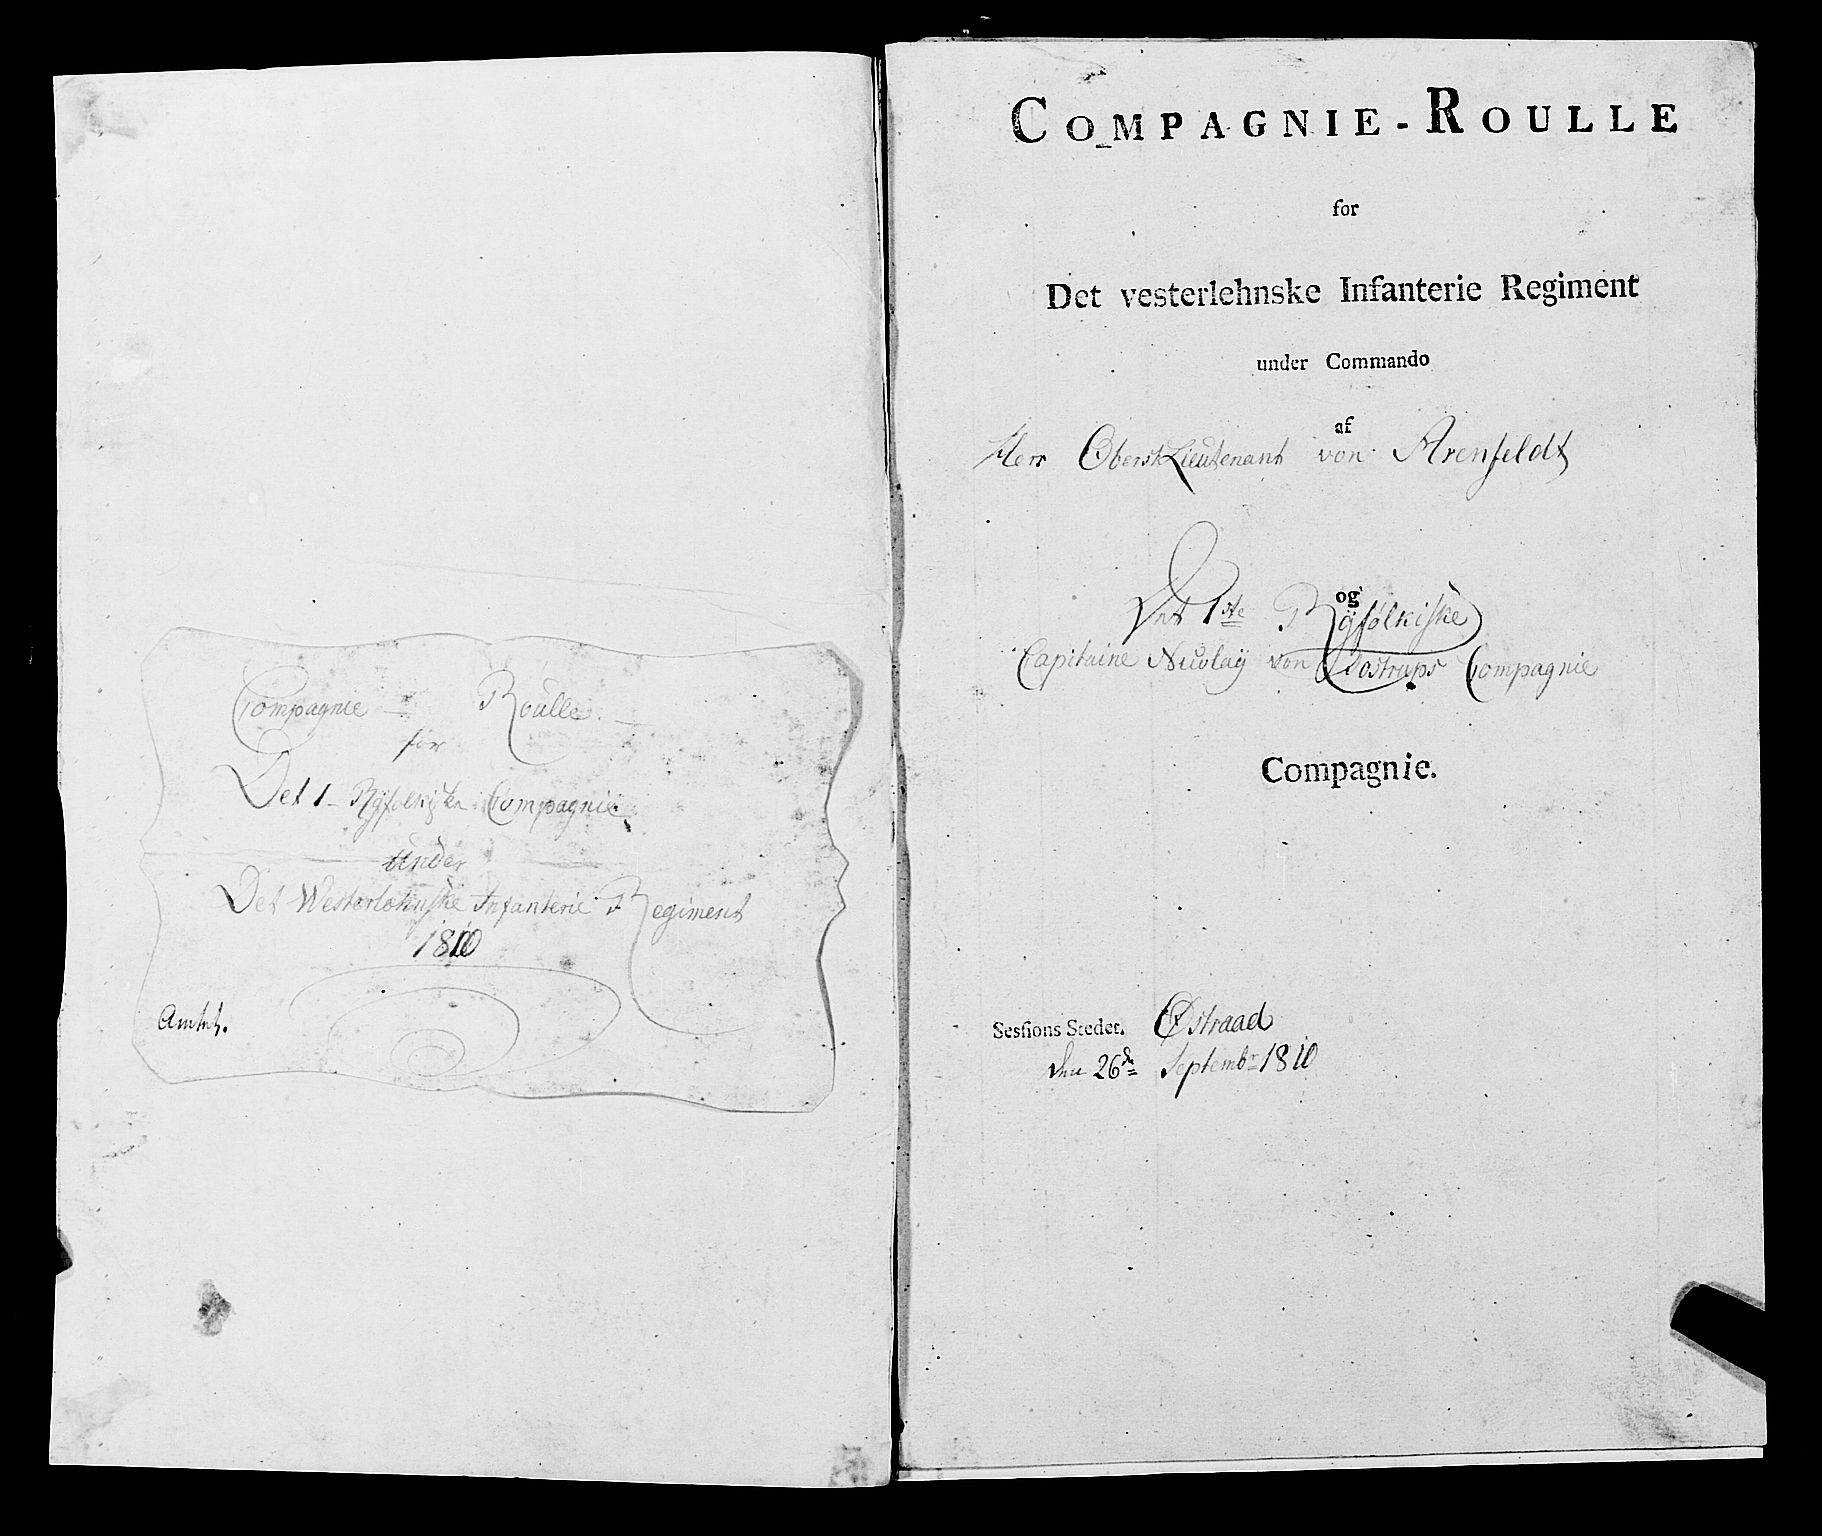 Compagnie - Roulle.
for
Det 1- Ryfolkiske Compagnie
Under
Det Westerlehnske Infanterie Regiment
1810
Amtet.
COMPAGNIE-ROULLE
for
Det vesterlehnske Infanterie Regiment
under Commando
af
Herr OberstLieutenant von Arenfeldt
og
Det 1ste Ryfolkiske
Capitaine Nicolaÿ von Compagnie
Compagnie.
Sessions Stedet. Østraad
den 26de Septembr 1810